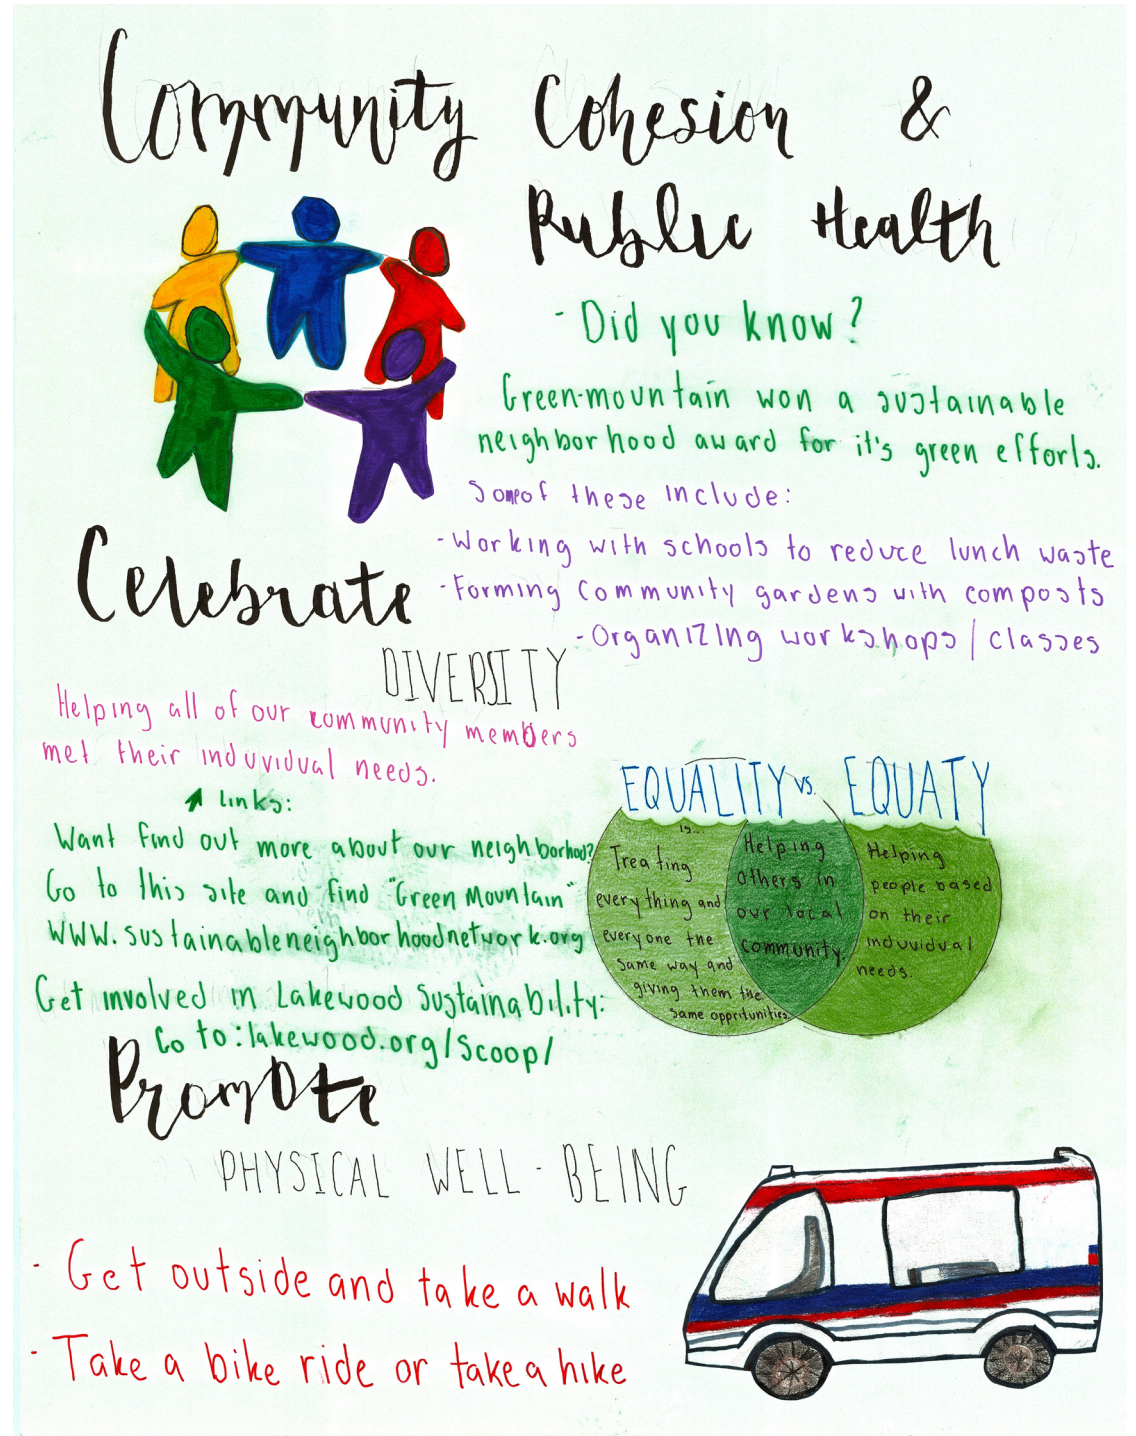 Community Cohesion &
Public Health
- Did you know?
Green-mountain won a sustainable
neighborhood award for it's green efforts.
Some of these include:
- Working with schools to reduce lunch waste
- Forming community gardens with composts
- Organizing workshops / classes
Celebrate
DIVERSITY
Helping all of our community members
met their induvidual needs.
Links:
Want find out more about our neighborhood?
Go to this site and find "Green Mountain"
WWW.sustainableneighborhoodnetwork.org
Get involved in Lakewood Sustainability:
Go to: lakewood.org/Scoop/
EQUALITY vs. EQUATY
is...
Treating
everything and
everyone the
same way and
giving them the
same opprtunities.
Helping
others in
our local
community.
Helping
people based
on their
induvidual
needs.
Promote
PHYSICAL WELL-BEING
- Get outside and take a walk
- Take a bike ride or take a hike